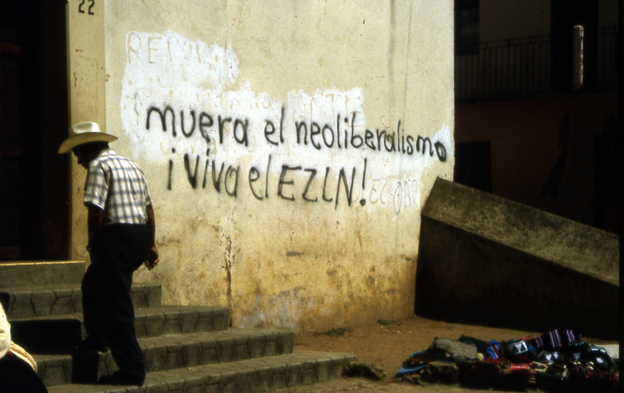 22
muera el neoliberalismo
¡viva el EZLN!